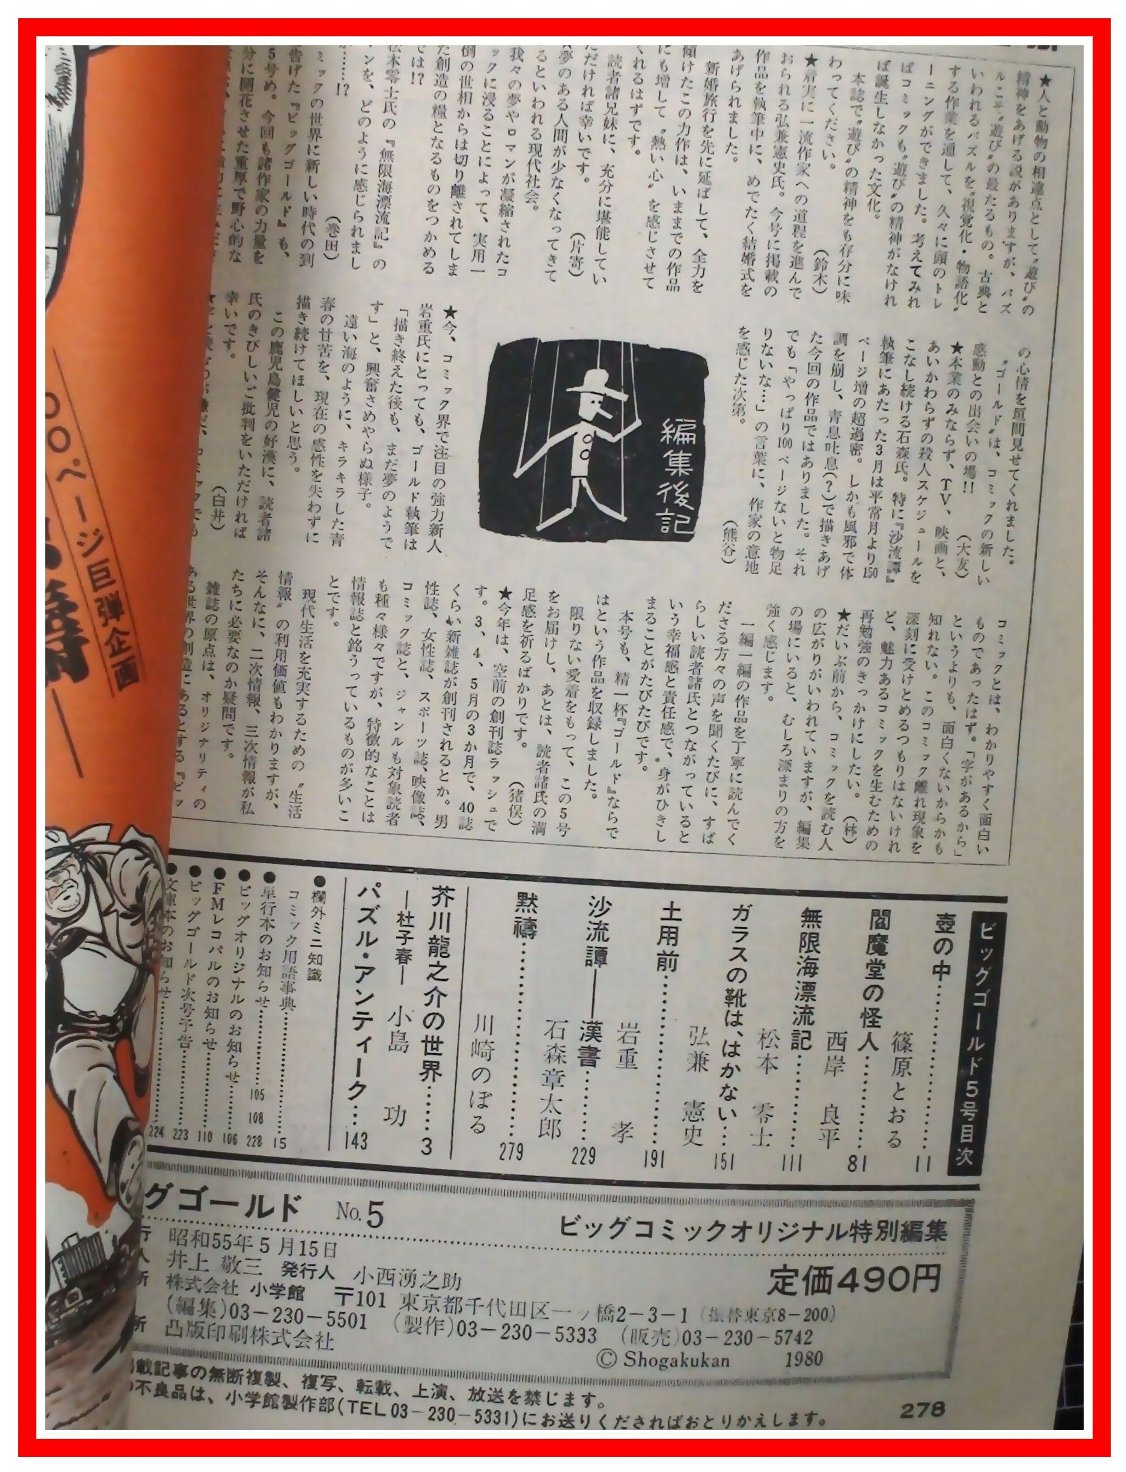 ★人と動物の相違点として〝遊び〟の
精神をあげる説がありますが、パズ
ルこそ〝遊び〟の最たるもの。古典と
いわれるパズルを〝視覚化・物語化〟
する作業を通して、久々に頭のトレ
ーニングができました。考えてみれ
ばコミックも〝遊び〟の精神がなけれ
ば誕生しなかった文化。
本誌で〝遊び〟の精神をも存分に味
わってください。（鈴木）
★着実に一流作家への道程を進んで
おられる弘兼憲史氏。今号に掲載の
作品を執筆中に、めでたく結婚式を
あげられました。
新婚旅行を先に延ばして、全力を
傾けたこの力作は、いままでの作品
にも増して〝熱い心〟を感じさせて
くれるはずです。
読者諸兄妹に、充分に堪能してい
ただければ幸いです。（片寄）
夢のある人間が少なくなってきて
るといわれる現代社会。
我々の夢やロマンが凝縮されたコ
ックに浸ることによって、実用一
倒の世相からは切り離されてしま
た創造の糧となるものをつかめる
では!?
松本零士氏の『無限海漂流記』の
マンを、どのように感じられまし
……!?（巻田）
ミックの世界に新しい時代の到
告げた『ビッグゴールド』も、
5号め。今回も諸作家の力量を
分に開花させた重厚で野心的な
の心情を垣間見せてくれました。
〝ゴールド〟は、コミックの新しい
感動との出会いの場!!（大友）
★本業のみならず、TV、映画と、
あいかわらずの殺人スケジュールを
こなし続ける石森氏。特に『沙流譚』
執筆にあたった3月は平常月より150
ページ増の超過密。しかも風邪で体
調を崩し、青息吐息(?)で描きあげ
た今回の作品ではありました。それ
でも「やっぱり100ページないと物足
りないな…」の言葉に、作家の意地
を感じた次第。（熊谷）
編集後記
★今、コミック界で注目の強力新人
岩重氏にとっても、ゴールド執筆は
「描き終えた後も、まだ夢のようで
す」と、興奮さめやらぬ様子。
遠い海のように、キラキラした青
春の甘苦を、現在の感性を失わずに
描き続けてほしいと思う。
この鹿児島健児の好漢に、読者諸
氏のきびしいご批判をいただければ
幸いです。（白井）
コミックとは、わかりやすく面白い
ものであったはず。「字があるから」
というよりも、面白くないからかも
知れない。このコミック離れ現象を
深刻に受けとめるつもりはないけれ
ど、魅力あるコミックを生むための
再勉強のきっかけにしたい。（林）
★だいぶ前から、コミックを読む人
の広がりがいわれていますが、編集
の場にいると、むしろ深まりの方を
強く感じます。
一編一編の作品を丁寧に読んでく
ださる方々の声を聞くたびに、すば
らしい読者諸氏とつながっていると
いう幸福感と責任感で、身がひきし
まることがたびたびです。
本号も、精一杯『ゴールド』ならで
はという作品を収録しました。
限りない愛着をもって、この5号
をお届けし、あとは、読者諸氏の満
足感を祈るばかりです。（猪俣）
★今年は、空前の創刊誌ラッシュで
す。3、4、5月の3か月で、40誌
くらい新雑誌が創刊されるとか。男
性誌、女性誌、スポーツ誌、映像誌、
コミック誌と、ジャンルも対象読者
も種々様々ですが、特徴的なことは
情報誌と銘うっているものが多いこ
とです。
現代生活を充実するための〝生活
情報〟の利用価値もわかりますが、
そんなに、二次情報、三次情報が私
たちに必要なのか疑問です。
雑誌の原点は、オリジナリティの
ある世界の創造にあるとする『ビッ
00ページ巨弾企画
ビッグゴールド5号目次
壺の中……篠原とおる 11
閻魔堂の怪人……西岸 良平 81
無限海漂流記……松本 零士 111
ガラスの靴は、はかない……弘兼 憲史 151
土用前……岩重 孝 191
沙流譚──漢書……石森章太郎 229
黙禱……川崎のぼる 279
芥川龍之介の世界……3
─杜子春─ 小島 功
パズル・アンティーク…143
●欄外ミニ知識
コミック用語事典……15
●単行本のお知らせ……105 108 228
●ビッグオリジナルのお知らせ……106
●FMレコパルのお知らせ……110
●ビッグゴールド次号予告……223
●文庫本のお知らせ……224
グゴールド No.5 ビッグコミックオリジナル特別編集
行 昭和55年5月15日 定価490円
人 井上 敬三 発行人 小西湧之助
所 株式会社 小学館 〒101 東京都千代田区一ッ橋2－3－1（振替東京8－200）
（編集）03－230－5501 （製作）03－230－5333 （販売）03－230－5742
所 凸版印刷株式会社
© Shogakukan 1980
掲載記事の無断複製、複写、転載、上演、放送を禁じます。
不良品は、小学館製作部(TEL 03－230－5331)にお送りくださればおとりかえします。
278